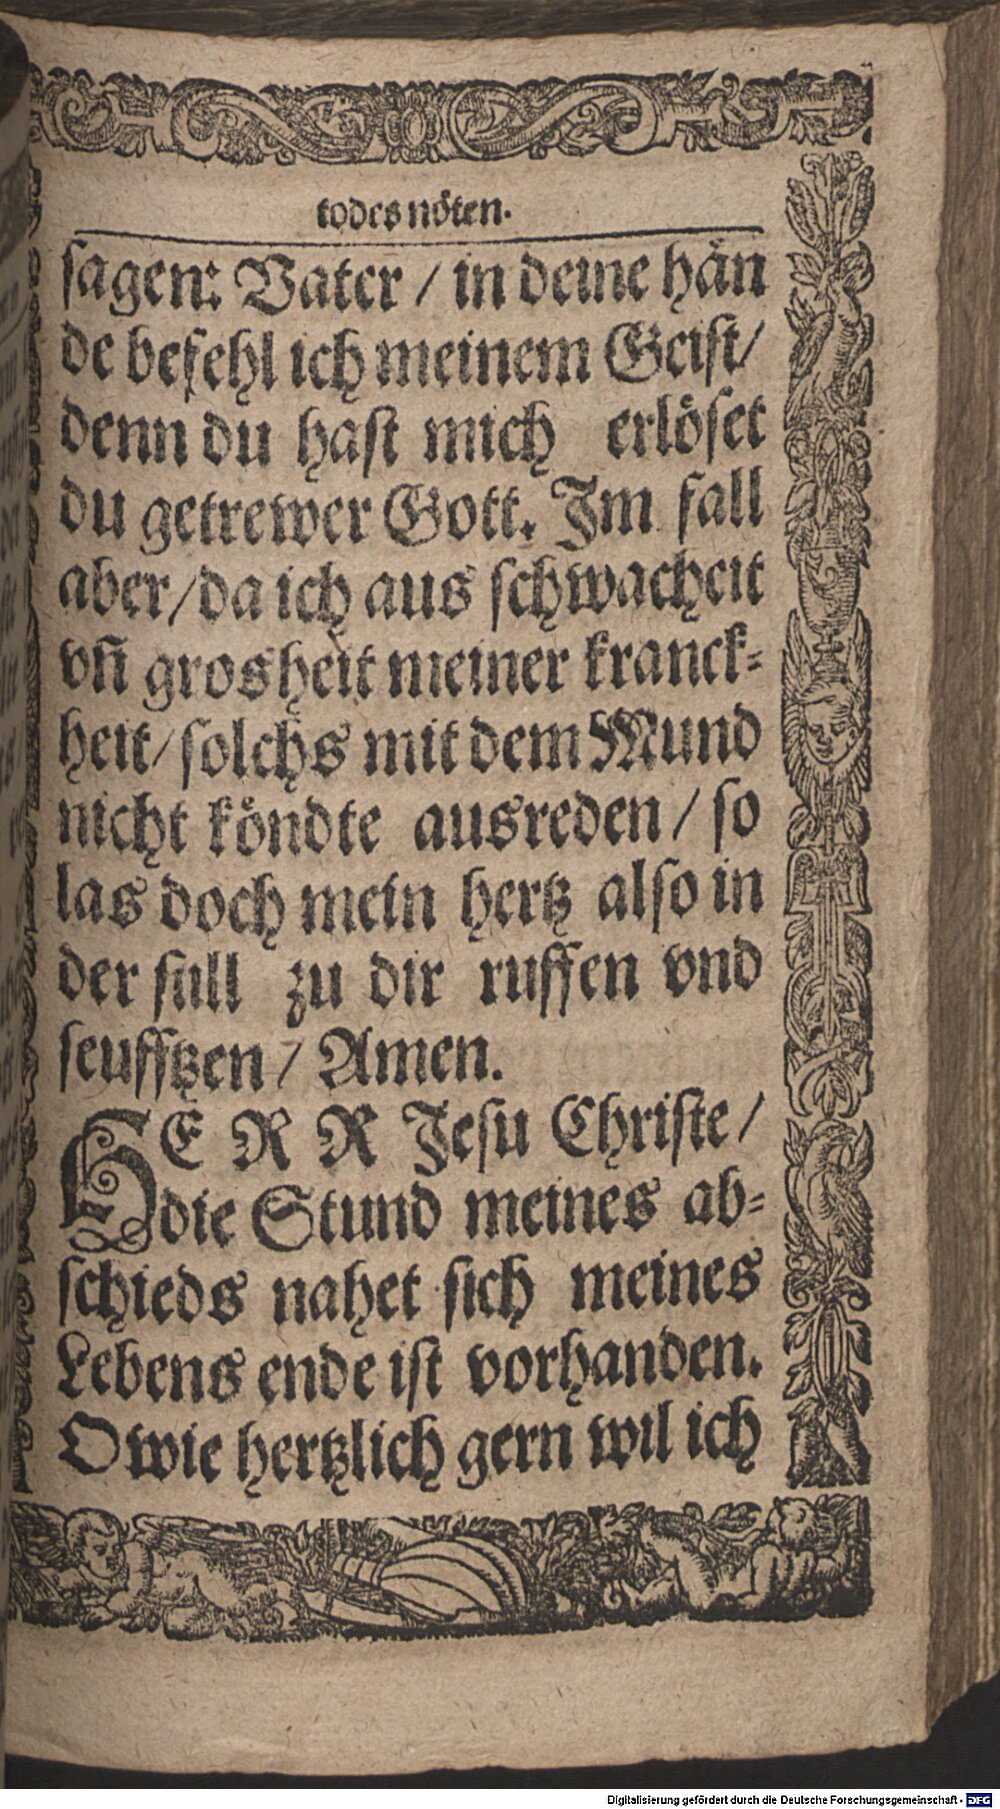 todes nöten.
sagen: Vater / in deine hän
de befehl ich meinem Geist/
denn du hast mich erlöset
du getrewer Gott. Im fall
aber/da ich aus schwacheit
vñ grosheit meiner kranck-
heit/solchs mit dem Mund
nicht köndte ausreden / so
las doch mein hertz also in
der still zu dir ruffen vnd
seufftzen / Amen.
HERR Jesu Christe /
die Stund meines ab-
schieds nahet sich meines
Lebens ende ist vorhanden.
O wie hertzlich gern wil ich
Digitalisierung gefördert durch die Deutsche Forschungsgemeinschaft - DFG